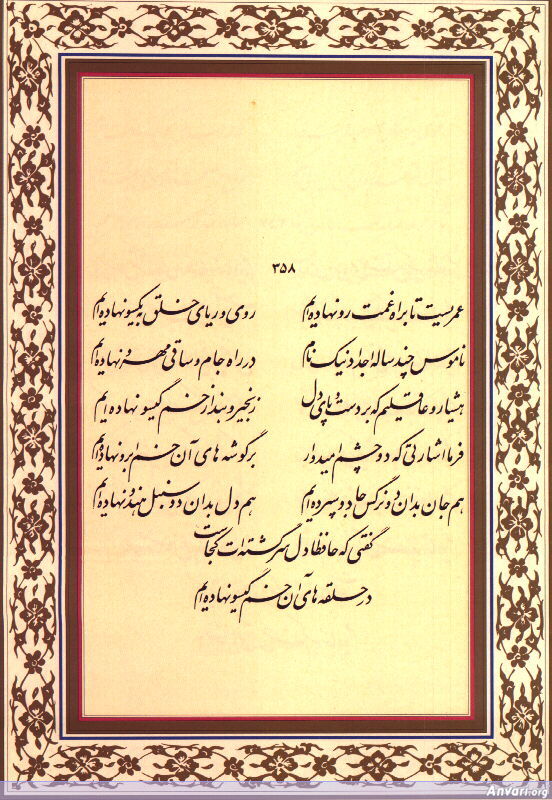 ۳۵۸
عمریست تا براه غمت رو نهاده‌ایم روی و ریای خلق به یکسو نهاده‌ایم
ناموس چند ساله اجداد نیک نام در راه جام و ساقی مهرو نهاده‌ایم
هشیار و عاقلیم که بر دست و پای دل زنجیر و بند از خم گیسو نهاده‌ایم
فرما اشارتی که دو چشم امیدوار بر گوشه‌های آن خم ابرو نهاده‌ایم
هم جان بدان دو نرگس جادو سپرده‌ایم هم دل بدان دو سنبل هندو نهاده‌ایم
گفتی که حافظا دل سرگشته‌ات کجاست
در حلقه‌های آن خم گیسو نهاده‌ایم
Anvari.org